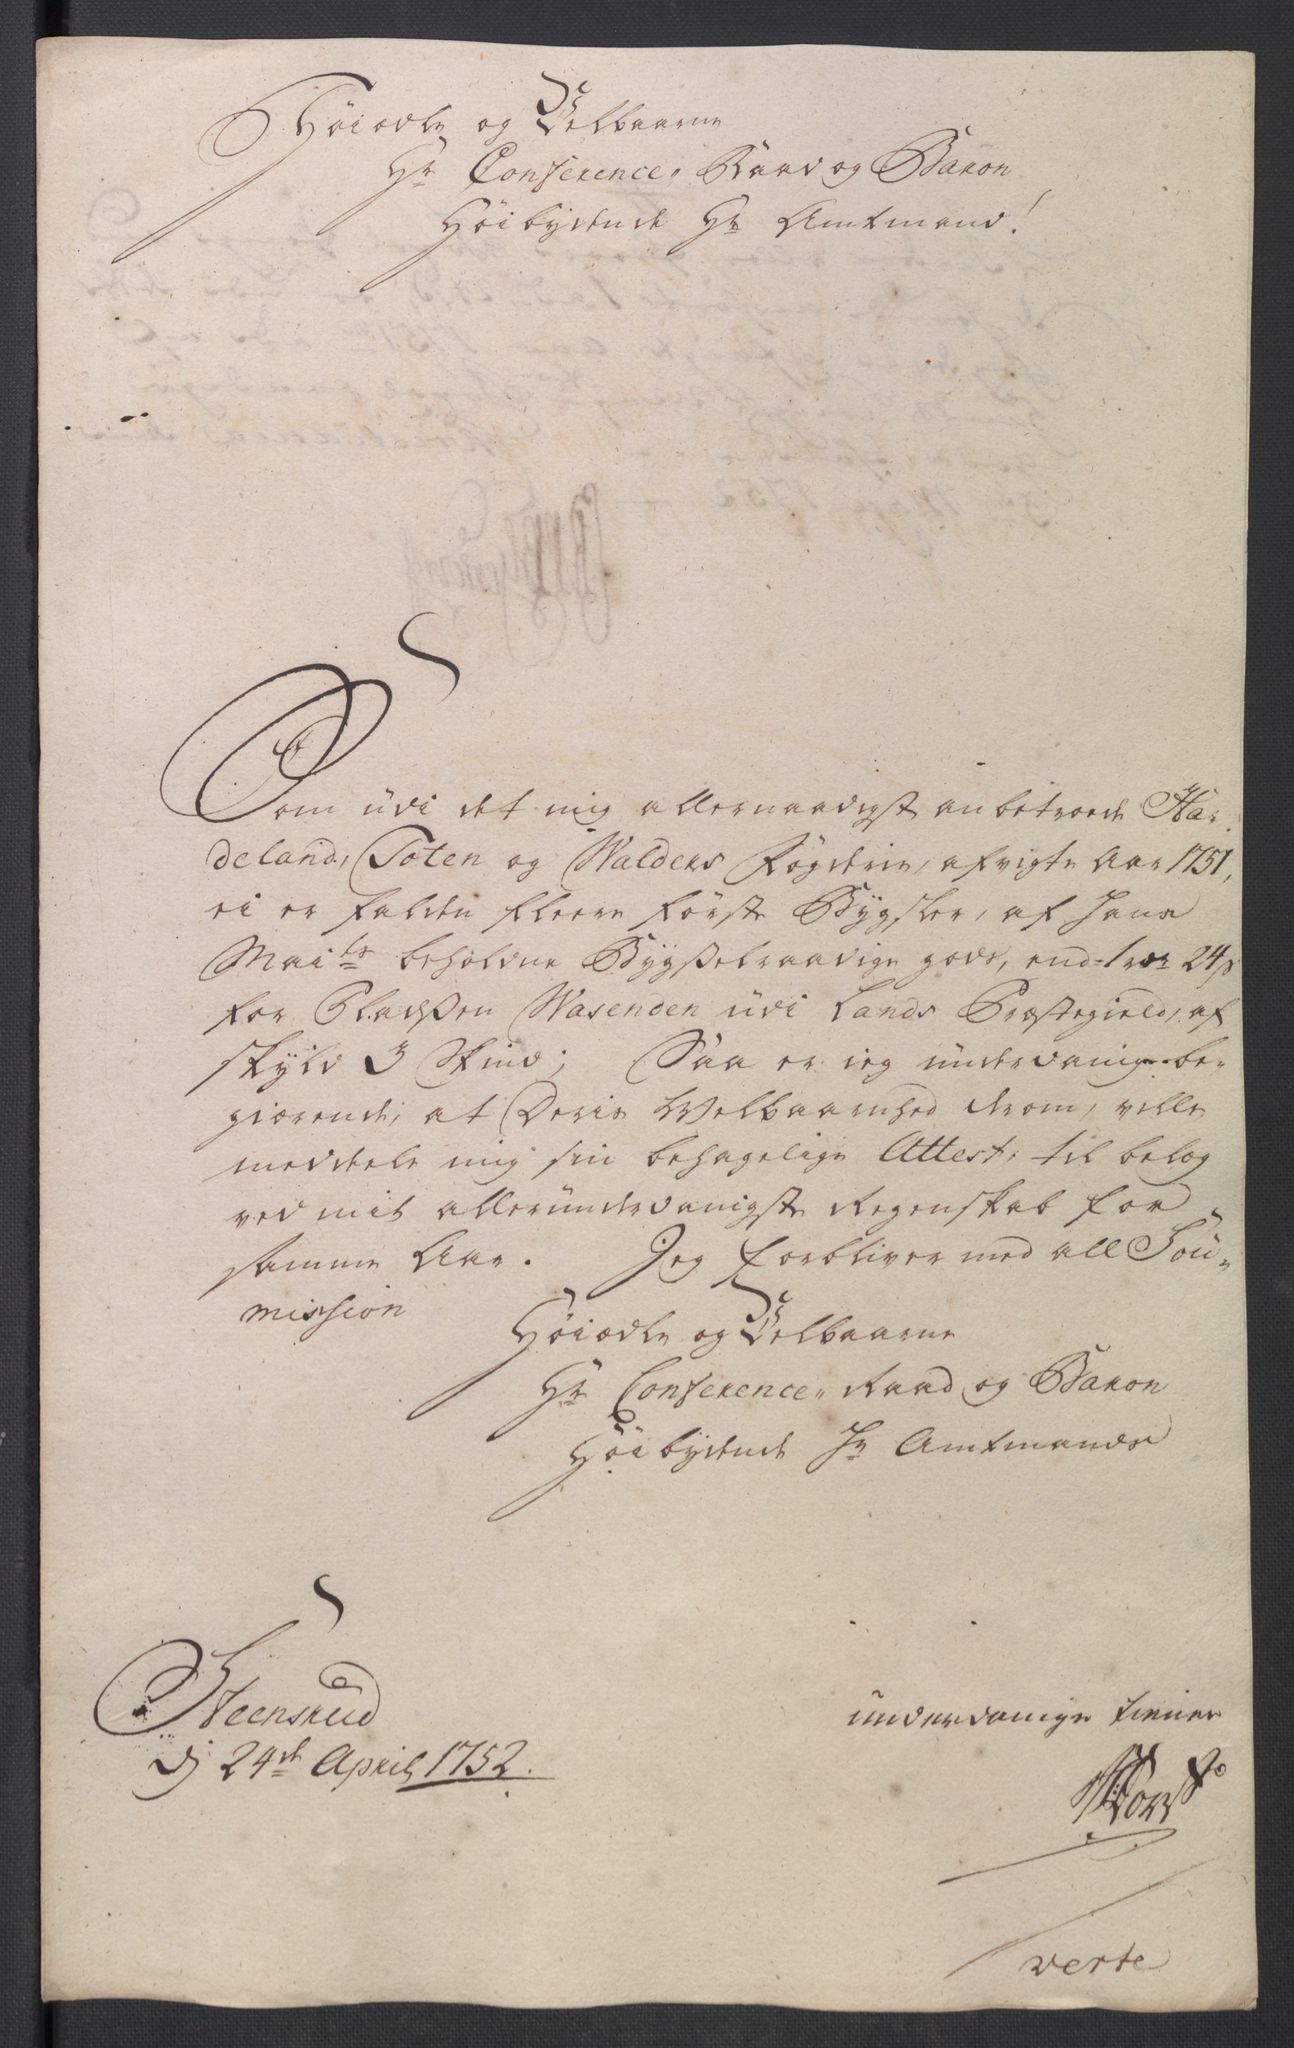 Høiædle og Velbaarne
Hr Conference, Raad og Baron
Høibydende Hr Amtmand!
Som udi det mig allernaadigst anbetroede Ha-
deland, Toten og Walders Fogderie, afvigte Aar 1751,
ei er falden fleere første Bygsler, af Hans
Maits beholdne Bygselraadige gods, end 1 rdr 24 s
for Pladsen Wasenden udi Lands Præstegield, af
skyld 3 Skind; Saa er ieg underdanig be-
giærende, at Deris Welbaarnhed derom, ville
meddele mig sin behagelige Attest, til belæg
ved mit allerunderdanigste Regenskab for
samme Aar. Jeg forbliver med all Sou-
mission
Høiædle og Velbaarne
Hr Conference, Raad og Baron
Høibydende Hr Amtmands
Steensrud
dj 24de April 1752.
underdanige tiener
verte